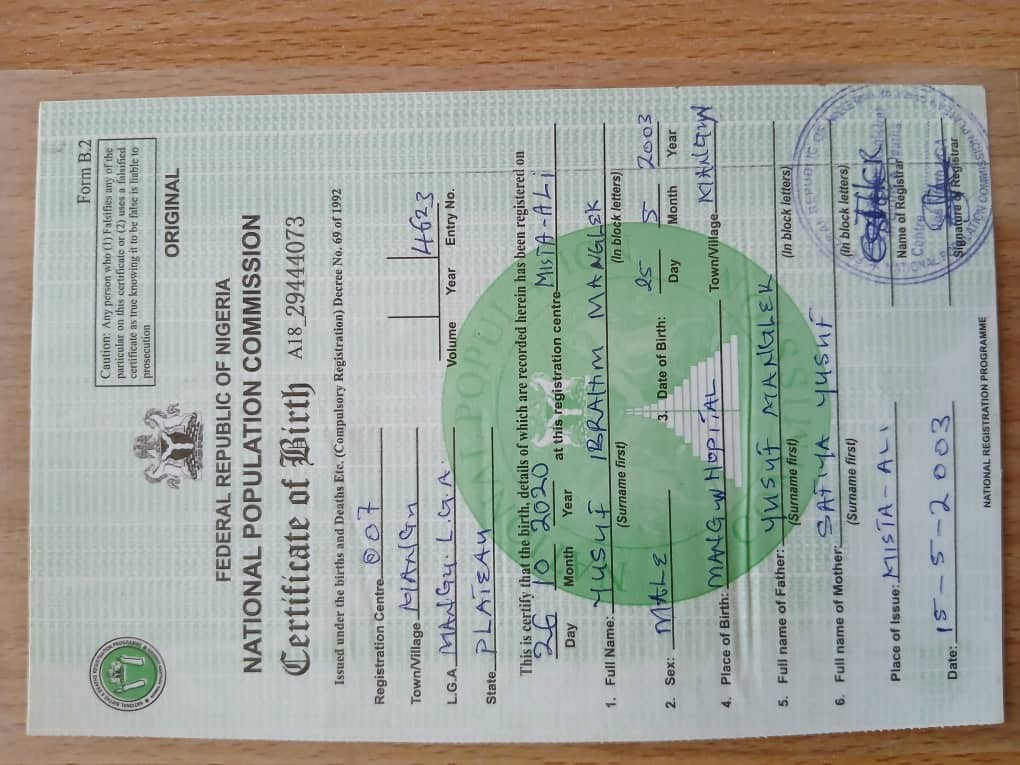 Form B.2
Caution: Any person who (1) Falsifies any of the
particular on this certificate or (2) uses a falsified
certificate as true knowing it to be false is liable to
prosecution
ORIGINAL
FEDERAL REPUBLIC OF NIGERIA
NATIONAL POPULATION COMMISSION
Certificate of Birth A18_29444073
Issued under the births and Deaths Etc. (Compulsory Registration) Decree No. 69 of 1992
Registration Centre 007
Town/Village MANGU 4623
L.G.A. MANGU L.G.A Volume Year Entry No.
State PLATEAU
This is certify that the birth, details of which are recorded herein has been registered on
26 10 2020 at this registration centre MISTA-ALI
Day Month Year
1. Full Name: YUSUF IBRAHIM MANGLEK
(Surname first) (In block letters)
2. Sex: MALE 3. Date of Birth: 25 5 2003
Day Month Year
4. Place of Birth: MANGUN HOPITAL Town/Village MANGUN
5. Full name of Father: YUSUF MANGLEK
(Surname first) (In block letters)
6. Full name of Mother: SAFIYA YUSUF
(Surname first) (In block letters)
Place of Issue: MISTA-ALI
Name of Registrar
Date: 15-5-2003
Signature of Registrar
NATIONAL REGISTRATION PROGRAMME